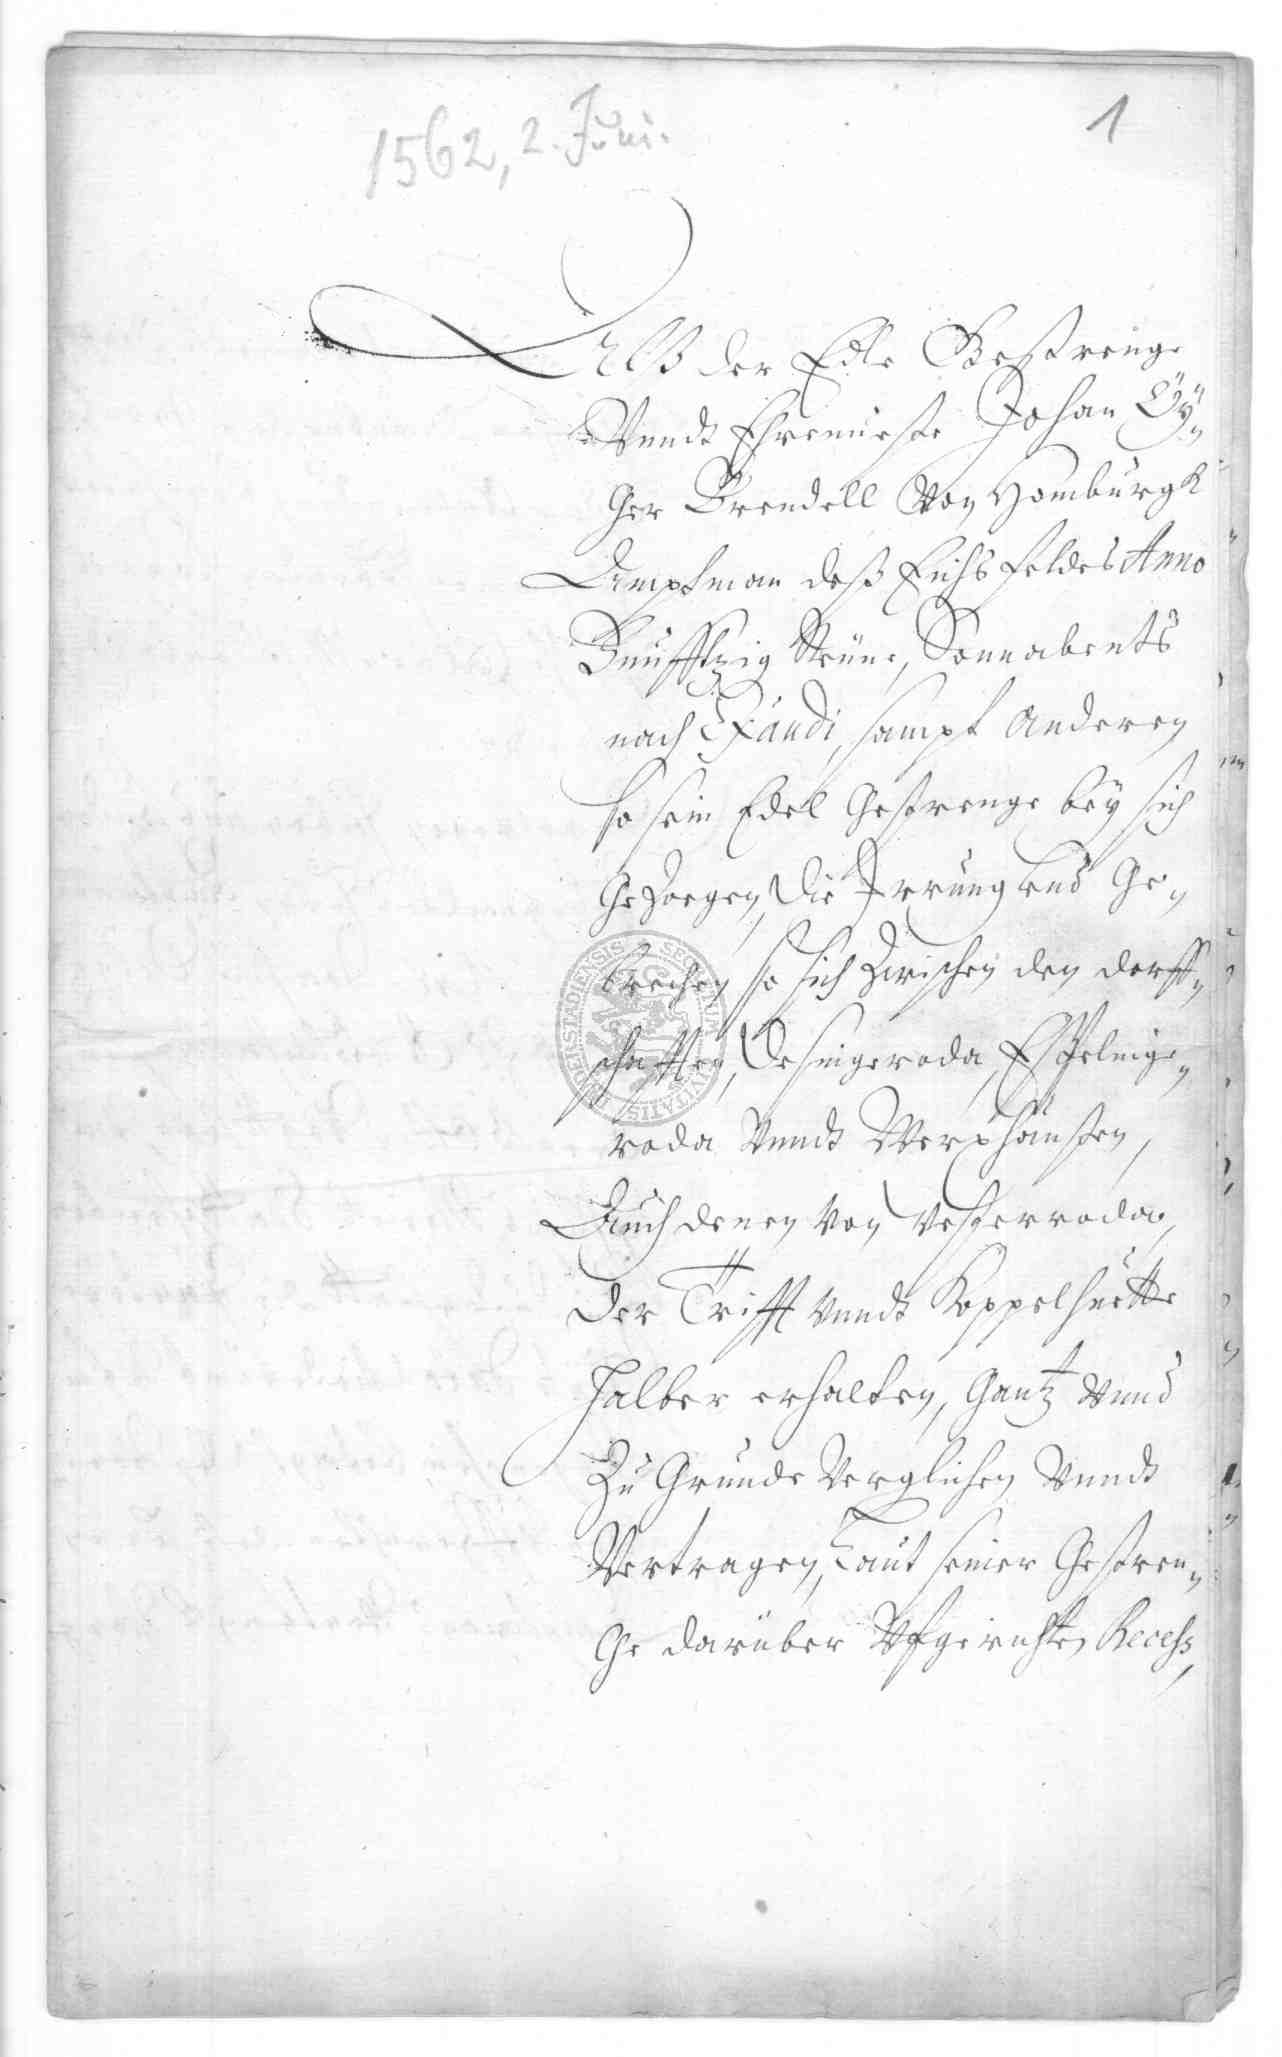 1562, 2. Juni.
1
Alß der Edle Gestrenge
Vnndt Ehrnueste Johan Oÿ„
ger Brendell Von Homburgk
Amptman deß Eichsfeldes Anno
Funfftzig Neüne, Sonnabents
nach Exaudi, sampt anderen
so sein Edel Gestrenge beÿ sich
Gezoegen, die Irrung vnd Ge„
brechen so sich zwischen den dorff„
schafften, Desingeroda, Esplinge„
roda Vnndt Werxhausen,
Auch denen Von Westerroda,
der Trifft vnndt Koppelhuette
halber erhalten, Gantz vnnd
Zu Grunde Verglichen Vnndt
Vertragen, Laut seiner Gestren„
Ge darüber Vfgerichten Recess,
SECRETUM
CIVITATIS